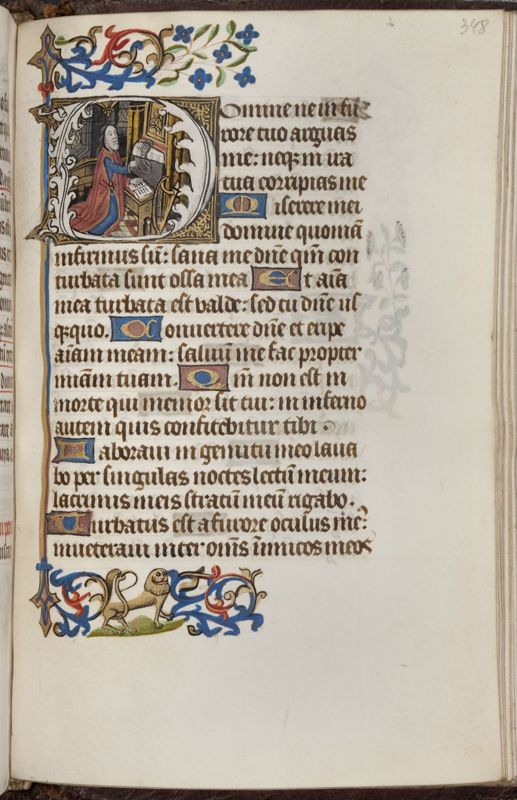 398
Domine ne in fu
rore tuo arguas
me: neq; in ira
tua corripias me
Miserere mei
domine quoniā
infirmus sū: sana me dn̄e qm̄ con
turbata sunt ossa mea Et aīa
mea turbata est valde: sed tu dn̄e us
q; quo. Convertere dn̄e et eripe
aīam meam: salvū me fac propter
mīam tuam. Qm̄ non est in
morte qui memor sit tui: in inferno
autem quis confitebitur tibi
Laboravi in gemitu meo lava
bo per singulas noctes lectū meum:
lacrimis meis stratū meū rigabo.
Turbatus est a furore oculus me
inveteravi inter om̄s inimicos meos